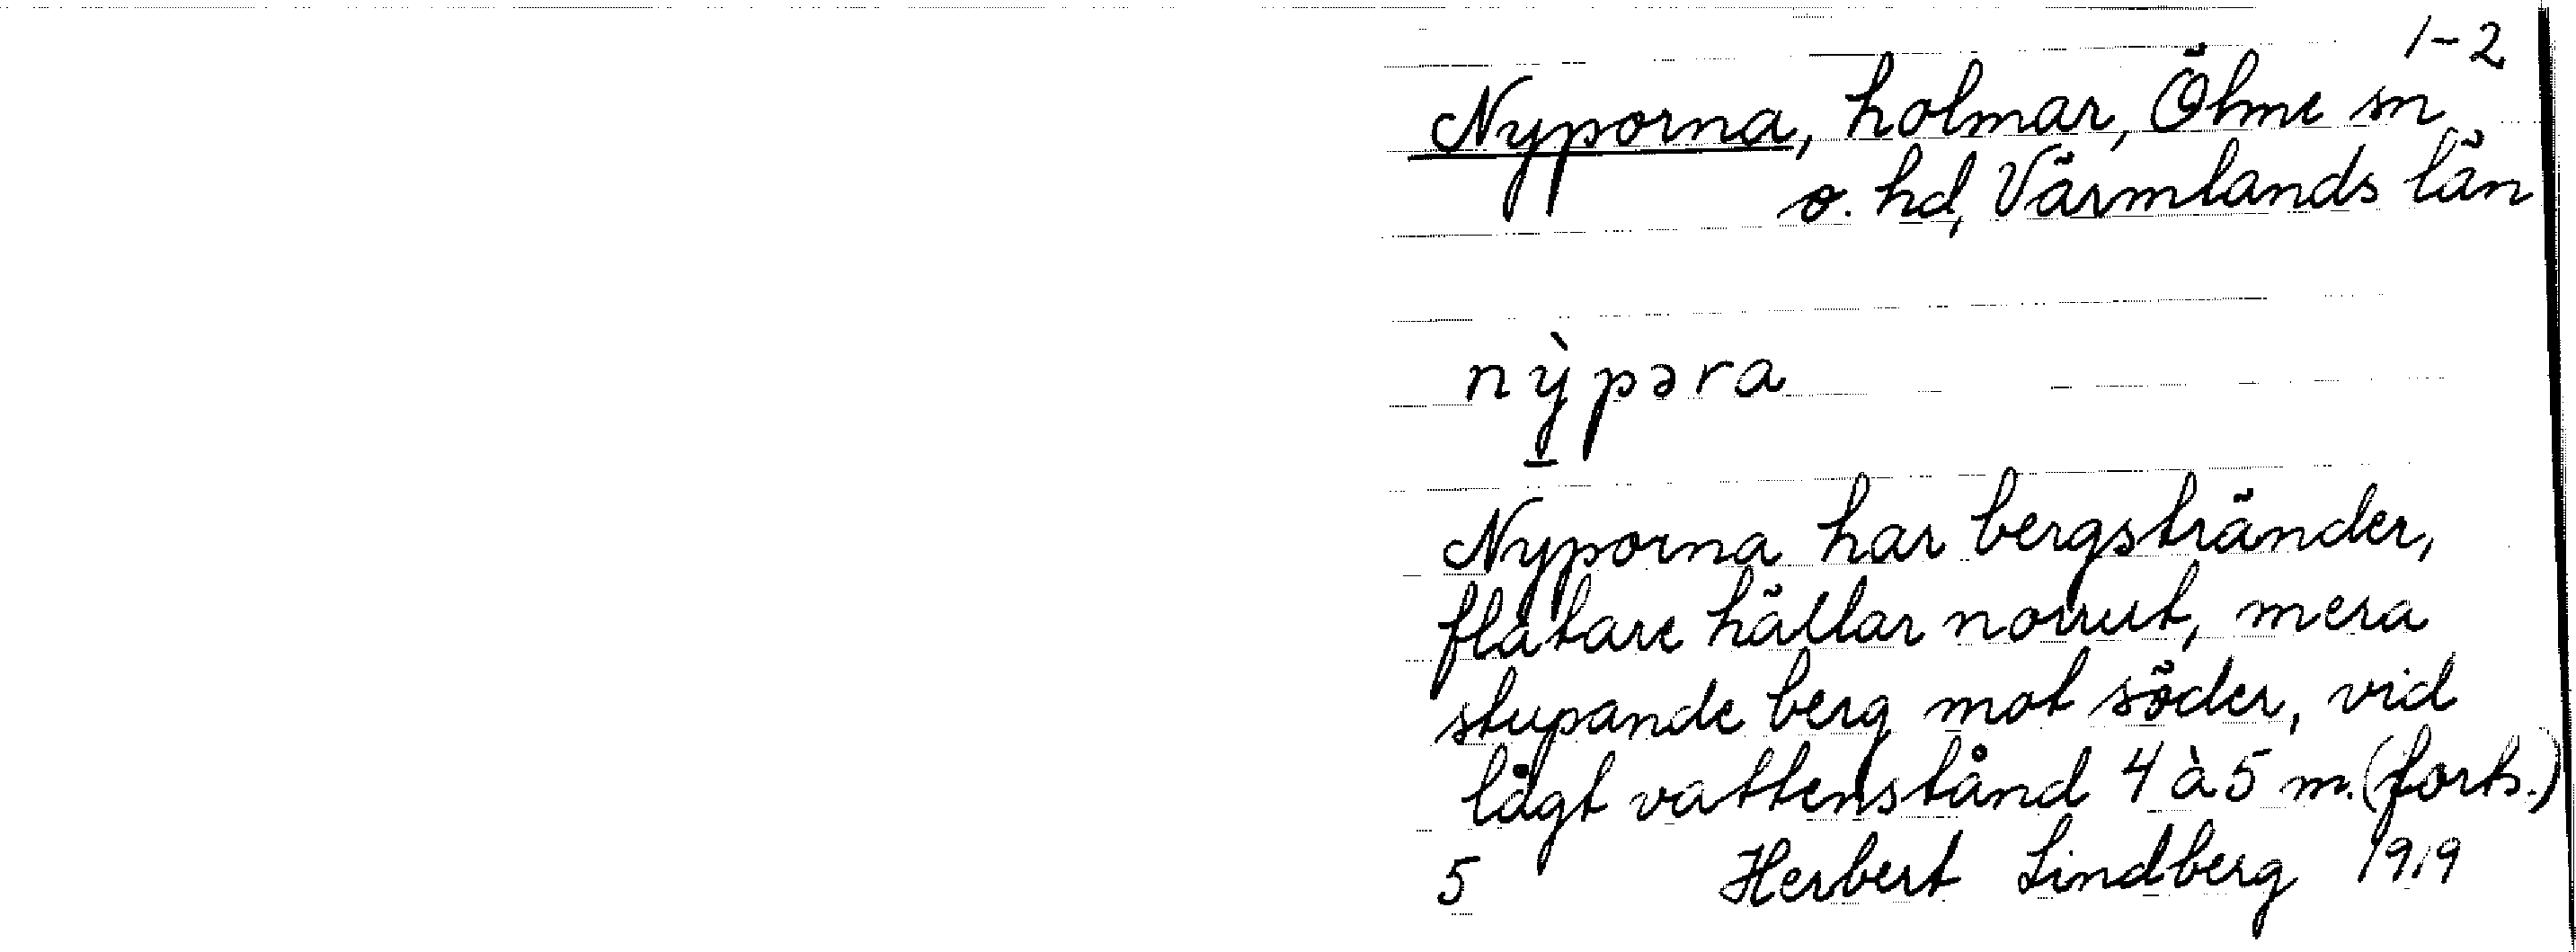 1-2
Nyporna, holmar, Ölme sn
o. hd, Värmlands län
nỳpəra
Nyporna har bergstränder,
flatare hällar norrut, mera
stupande berg mot söder, vid
lågt vattenstånd 4 à 5 m. (forts.)
5 Herbert Lindberg 1919